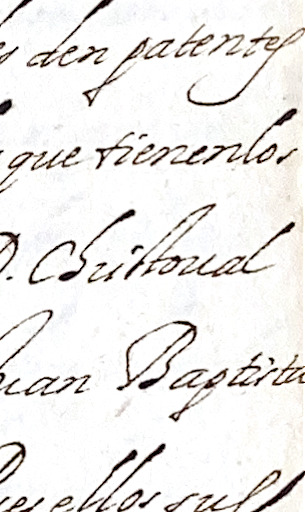 den patentes
que tienen los
D. Christoual
Juan Baptista
ellos sus